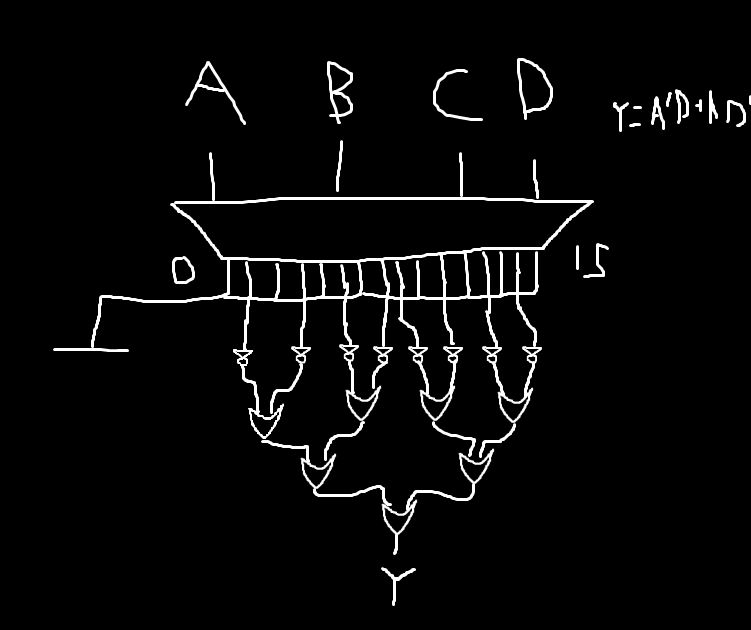 A B C D
Y=A'D+AD'
0 15
Y